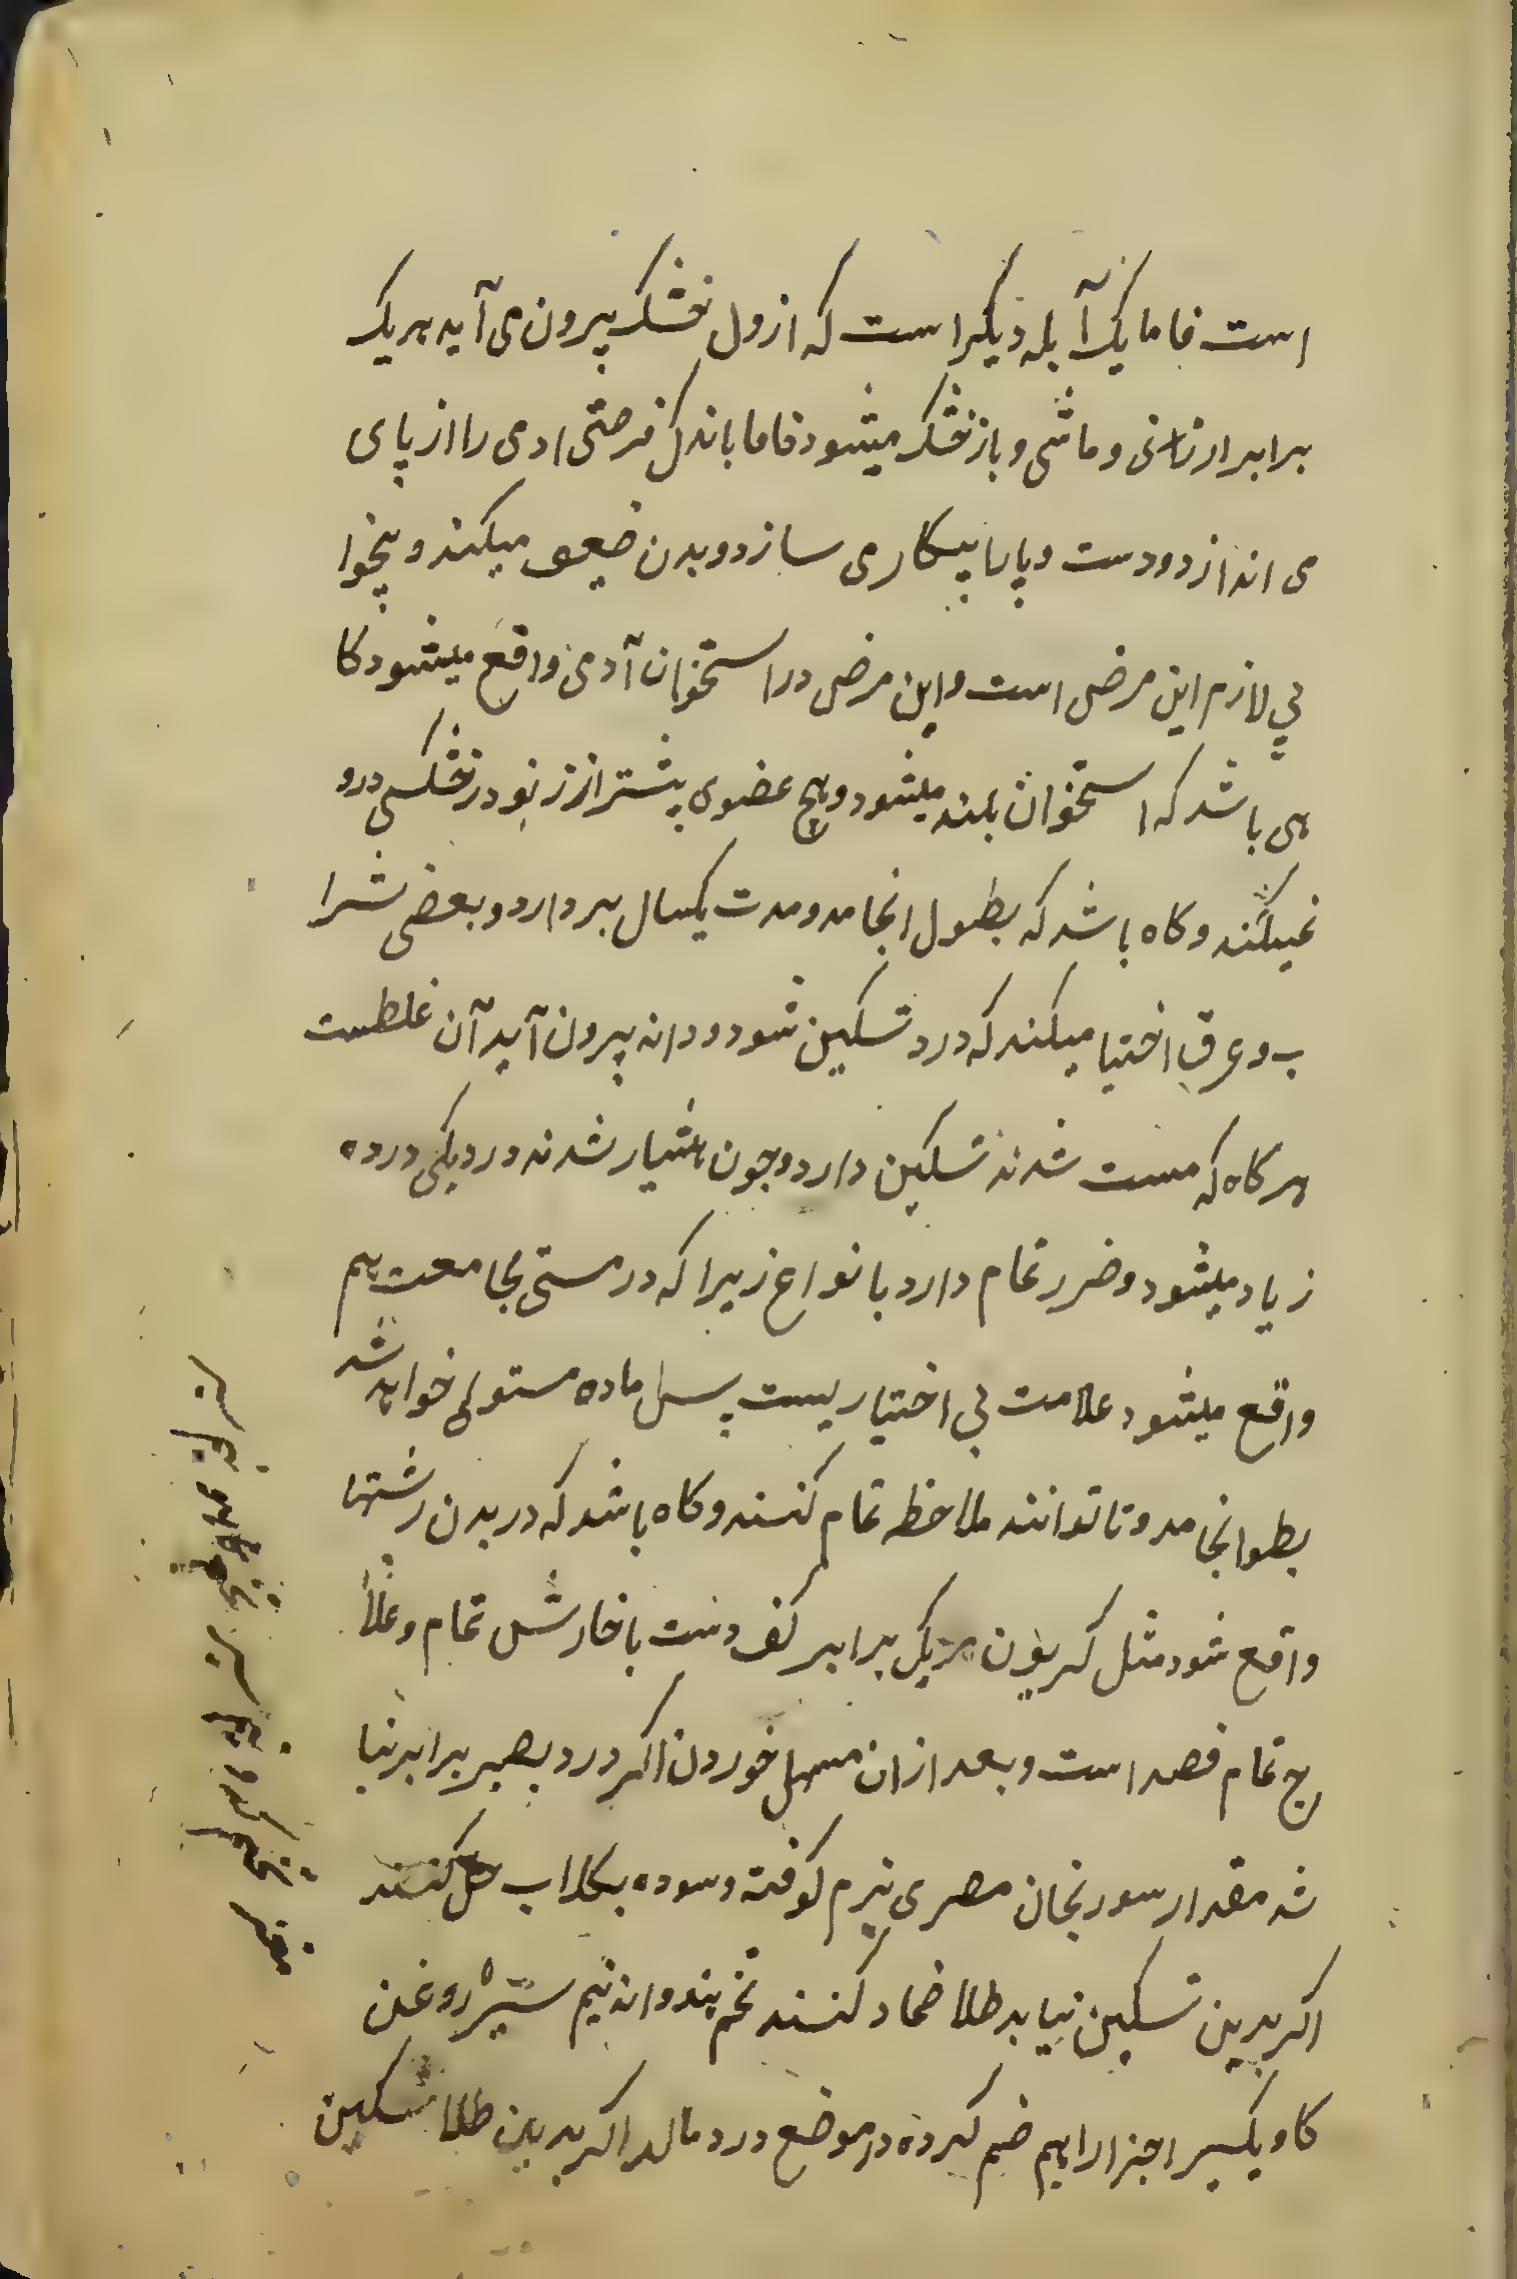 است فاما یک آبله دیکر است که از ول خشک بیرون می آید هریک
برابر ارزنی و ماشی و باز خشک میشود فاما باندک فرصتی ادمی را از پای
می اندازد و دست و پا را بیکار می سازد و بدن ضیعف میکند و بیخوا
بی لازم این مرض است و این مرض در استخوان آدمی واقع میشود کا
هی باشد که استخوان بلند میشود و هیچ عضوی بیشتر از زنبود خشکی درو
نمیکند و کاه باشد که بطول انجامد و مدت یکسال بردارد و بعضی شرا
ب و عرق اختیا میکند که درد تسکین شود و دانه بیرون آید آن غلطست
هر کاه که مست شدند تسکین دارد و چون هشیار شدند درد یکی در ده
زیاد میشود و ضرر تمام دارد بانواع زیرا که در مستی مجامعت هم
واقع میشود علامت بی اختیاریست پس ماده مستولی خواهد شد
بطو انجامد و تا توانند ملاحظه تمام کنند و کاه باشد که در بدن رشتها
واقع شود مثل کریون هریک برابر کف دست با خارش تمام و علا
ج تمام فصد است و بعد از ان مسهل خوردن اکر درد بصبر برابر نبا
شد مقدار سورنجان مصری نیرم کوفته و سوده بکلاب حل کنند
اکر بدین تسکین نیابد طلا ضماد کنند تخم هندوانه نیم سیر روغن
کاو یکسیر اجزا را بهم ضم کرده در موضع درد مالد اکر بدین طلا تسکین